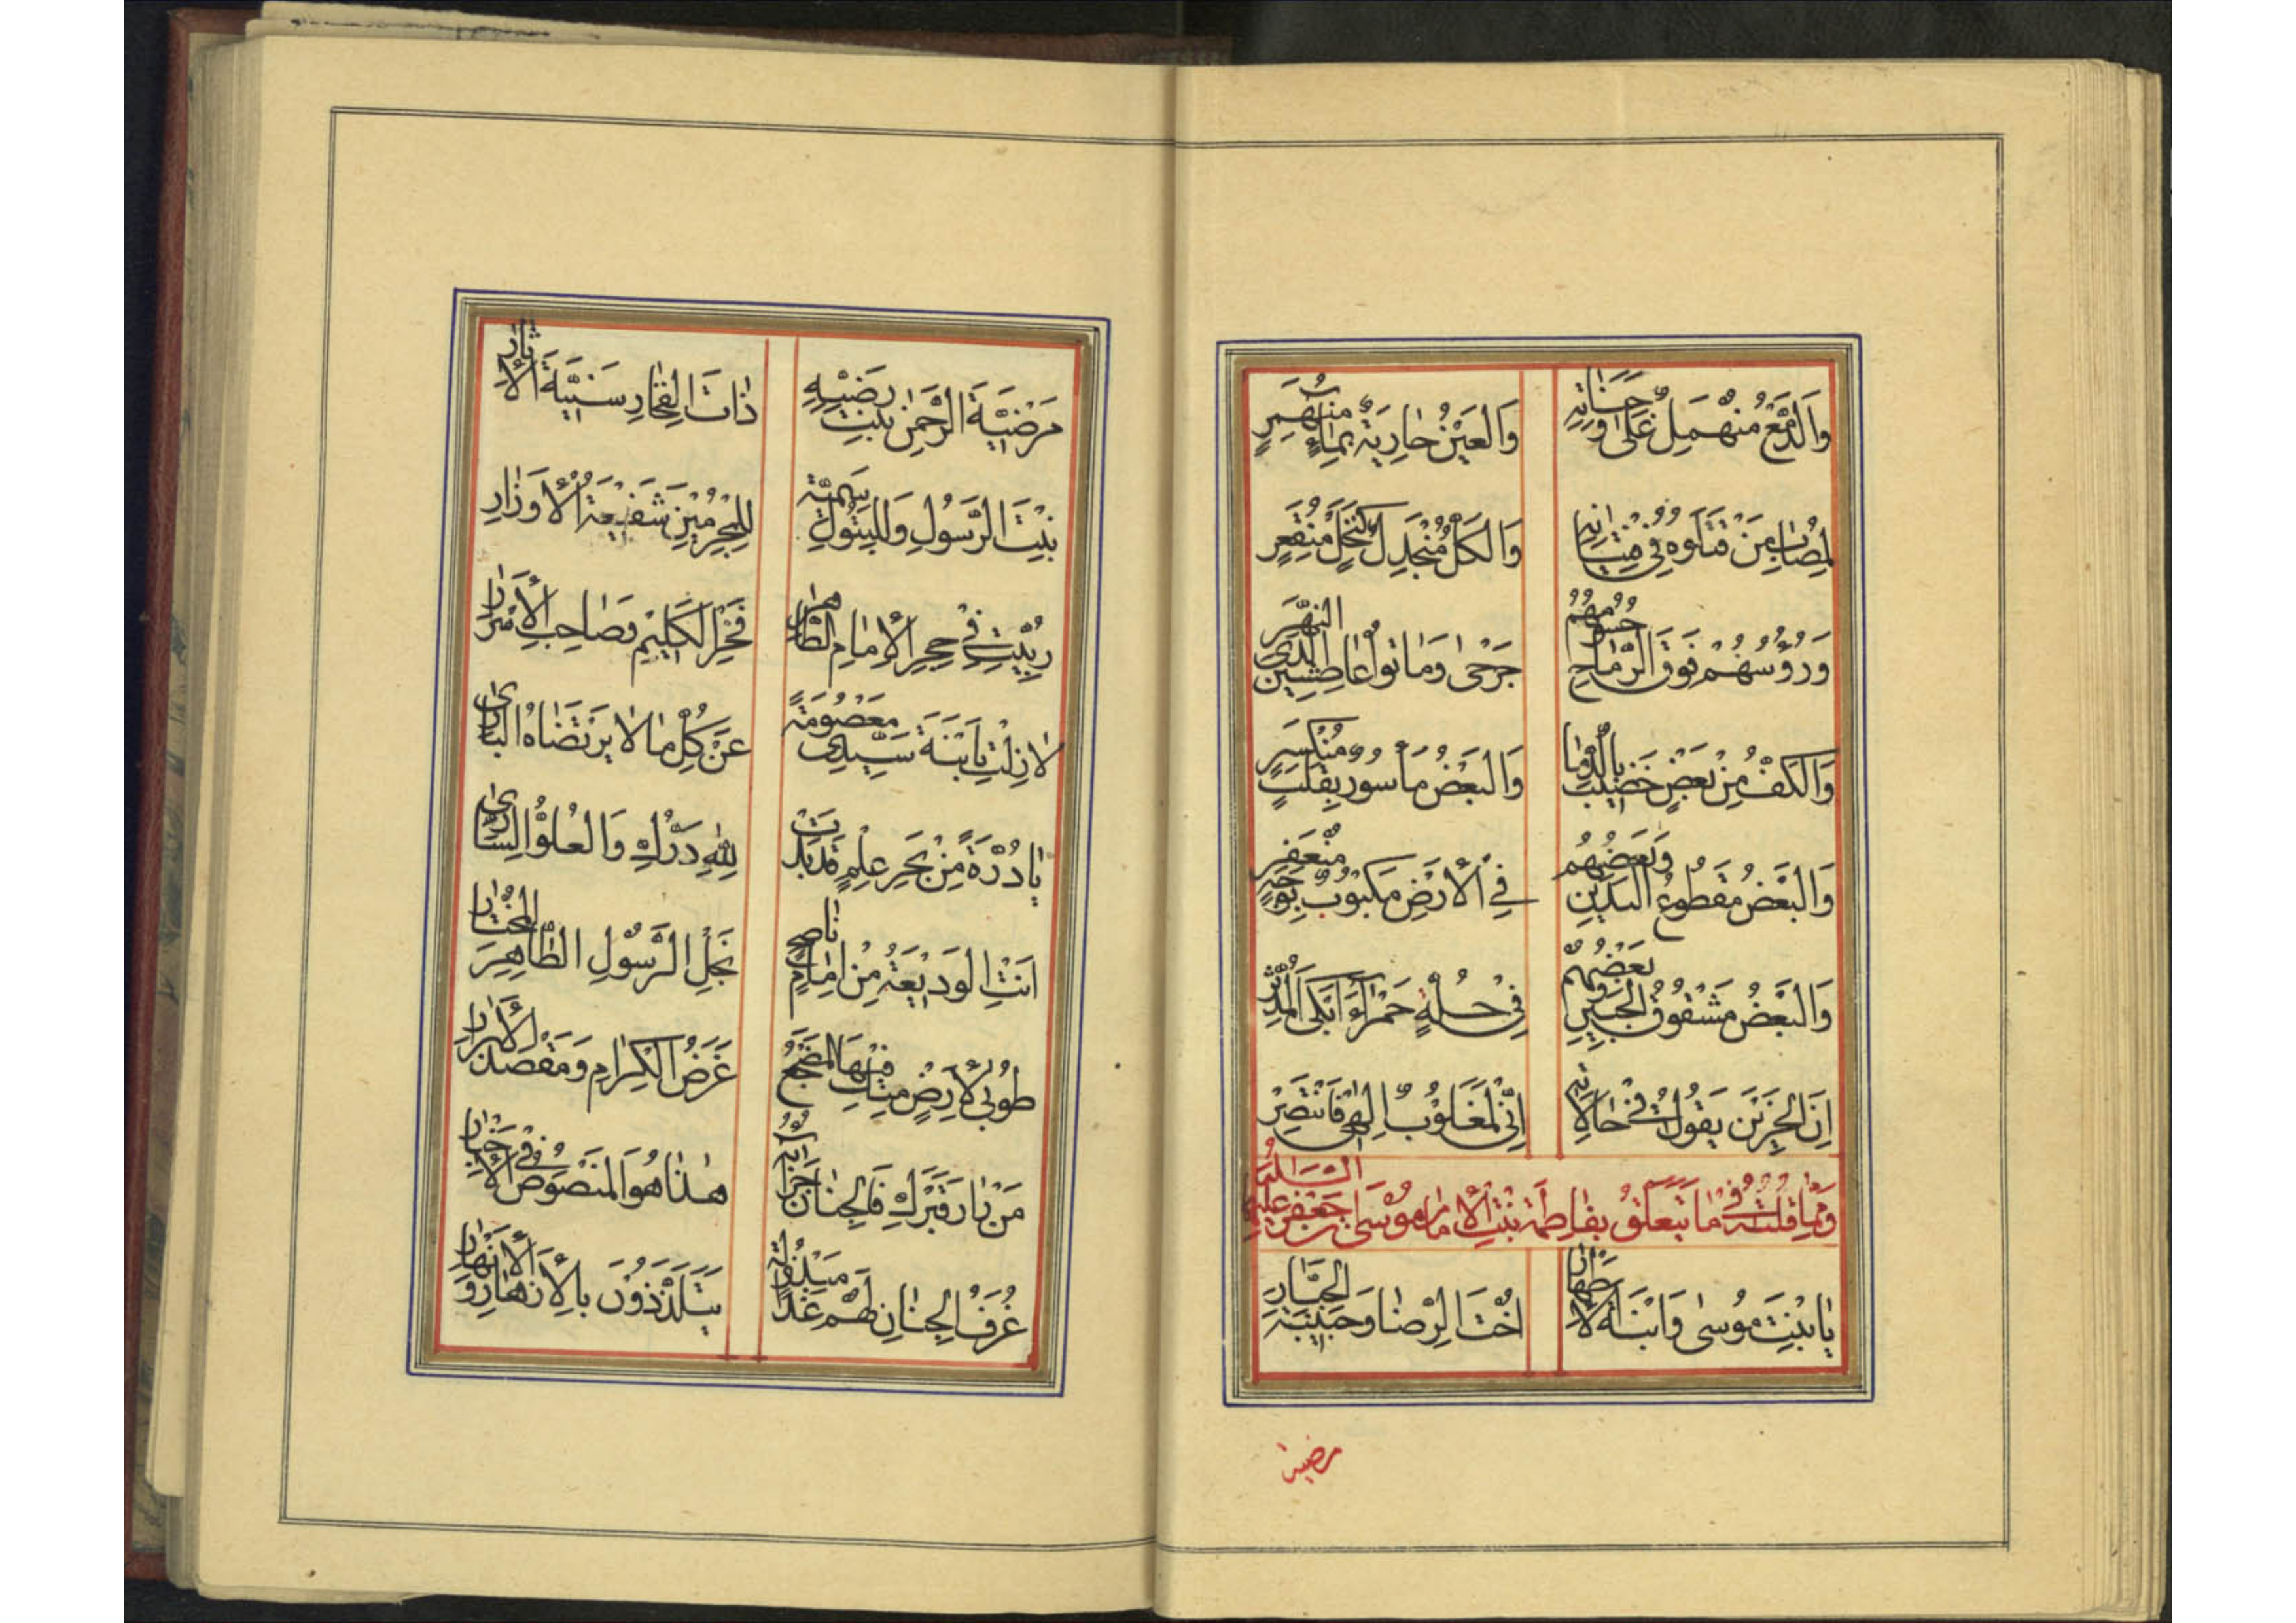 وَالدَّمْعُ مُنْهَمِلٌ عَلىٰ وَجَنٰاتِهِ
وَالعَيْنُ جٰارِيَةٌ بِمٰاءٍ مُنْهَمِرٍ
لِمُصٰابِ مَنْ قَتَلُوهُ فِي
وَالكُلُّ مُنْجَدِلٌ كَنَخْلٍ مُنْقَعِرٍ
وَرُؤُسُهُمْ فَوْقَ الرِّمٰاحِ جُسُومُهُمْ
جَرْحىٰ وَمٰاتُوا عٰاطِشِينَ لَدَى النَّهَر
وَالكَفُّ مِنْ بَعْضٍ خَضِيبٌ بِالدِّمٰا
وَالبَعْضُ مَأْسُورٌ بِقَلْبٍ مُنْكَسِرٍ
وَالبَعْضُ مَقْطُوعُ اليَدَيْنِ وَبَعْضُهُم
فِي الأَرْضِ مَكْبُوبٌ بِوَجْهٍ مُنْعَفِرٍ
وَالبَعْضُ مَشْقُوقُ الجَبِينِ وَبَعْضُهُمْ
فِي حُلَّةٍ حَمْرٰاءَ أَبْكَى المُدَّثِّر
إِنَّ الحَزِينَ يَقُولُ فِي حٰالاتِهِ
إِنِّي لَمَغْلُوبٌ إِلٰهِي فَانْتَصِرْ
وَمِمّٰا قُلْتُهُ فِي مٰا يَتَعَلَّقُ بِفٰاطِمَةَ بِنْتِ الإِمٰامِ مُوسَى بْنِ جَعْفَرٍ عَلَيْهِمُ السَّلٰامُ
يٰا بِنْتَ مُوسىٰ وَابْنَةَ الأَطْهٰارِ
أُخْتَ الرِّضٰا وَحَبِيبَةَ الجَبّٰارِ
مرضية
مَرْضِيَّةَ الرَّحْمٰنِ بِنْتَ رَضِيِّهِ
ذٰاتَ الفِخٰارِ سَنِيَّةَ الآثٰارِ
بِنْتَ الرَّسُولِ وَلِلْبَتُولِ سَمِيَّة
لِلْمُجْرِمِينَ شَفِيعَةُ الأَوْزٰارِ
رُبِّيتِ فِي حِجْرِ الإِمٰامِ الطّٰاهِرِ
فَخْرِ الكَلِيمِ وَصٰاحِبِ الأَسْرٰارِ
لاٰ زِلْتِ يٰا بْنَةَ سَيِّدِي مَعْصُومَةً
عَنْ كُلِّ مٰا لاٰ يَرْتَضٰاهُ البٰارِي
يٰا دُرَّةً مِنْ بَحْرِ عِلْمٍ قَدْ بَدَتْ
لِلّٰهِ دَرُّكِ وَالعُلُوُّ السّٰارِي
أَنْتِ الوَدِيعَةُ مِنْ إِمٰامٍ نٰاصِحٍ
نَجْلِ الرَّسُولِ الطّٰاهِرِ المُخْتٰارِ
طُوبىٰ لأَرْضٍ مِنْكِ فِيهَا المَضْجَعُ
غَرَضُ الكِرٰامِ وَمَقْصَدُ الأَبْرٰارِ
مَنْ زٰارَ قَبْرَكِ فَالجِنٰانُ جَزٰاؤُهُ
هٰذٰا هُوَ المَنْصُوصُ فِي الأَخْبٰارِ
غُرَفُ الجِنٰانِ لَهُمْ غَدًا مَبْذُولَة
يَتَلَذَّذُونَ بِالأَزْهٰارِ وَالأَنْهٰارِ